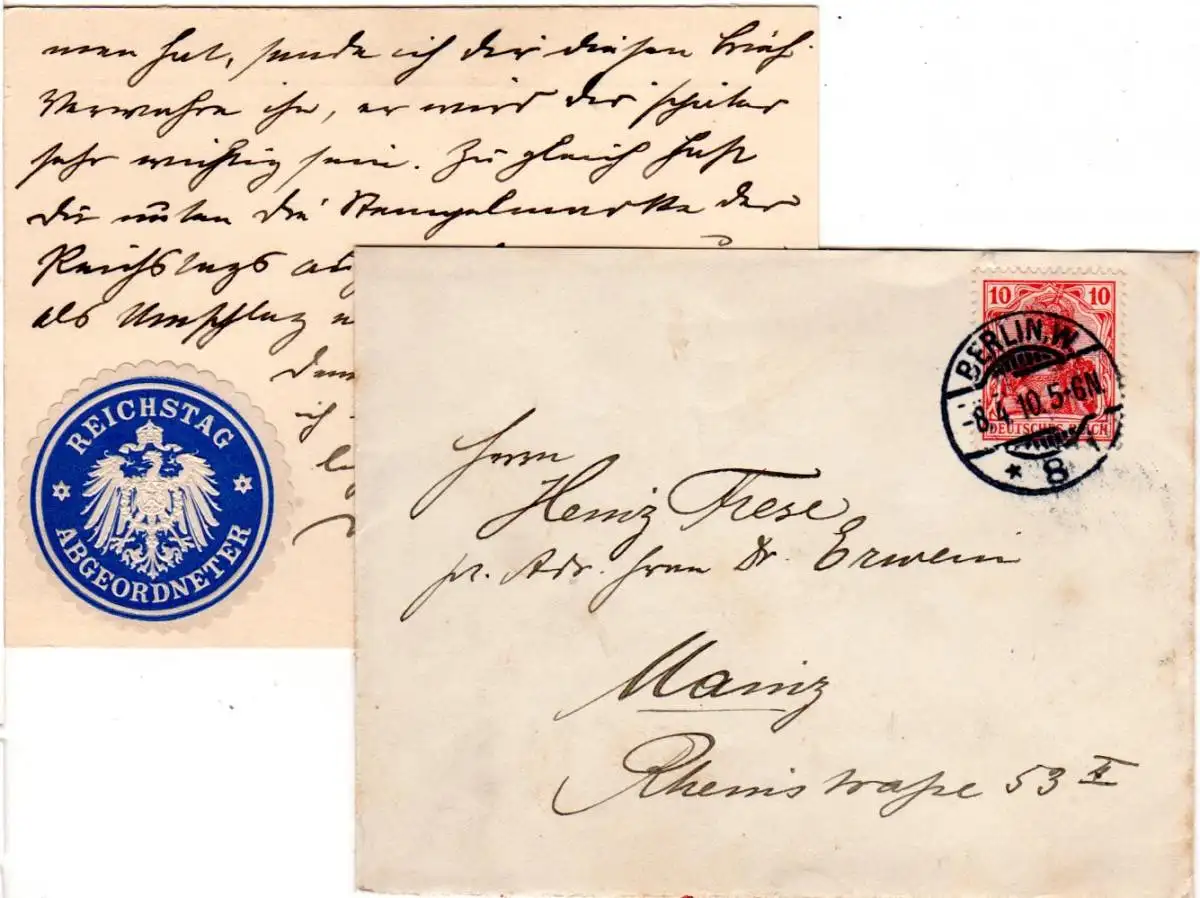 men hat, sende ich dir diesen Brief.
Verwahre ihn, er wird dir später
sehr wichtig sein. Zugleich hast
du unten die Stempelmarke der
Reichstags
als Umschlag
ich
REICHSTAG
ABGEORDNETER
10 10
DEUTSCHES REICH
BERLIN.W.
-8.4.10.5-6N.
* 8
Herrn
Heinz Frese
pr. Adr. Frau Dr. Erwein
Mainz
Rheinstraße 53 II